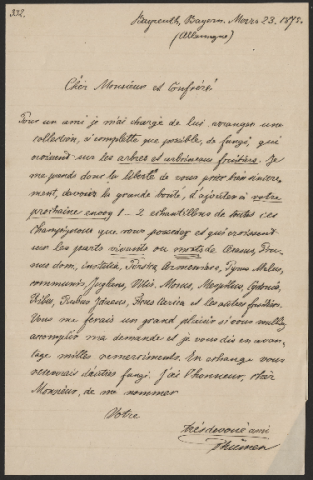 332.
Bayreuth, Bayern. Mars 23. 1875.
(Allemagne)
Cher Monsieur et Confrère!
Pour un ami je m'ai chargé de lui arranger une
collection, si complette que possible, de fungi, qui
croissent sur les arbres et arbrisseaux fruitiers. Je
me prends donc la liberté de vous prier bien sincère-
ment, devoir la grande bonté, d'ajouter à votre
prochaine envoy 1-2 echantillons de toutes ces
champignons que vous possedez et qui croissent
sur les parts vivants ou morts de Cerasus, Pru-
nus dom., insititia, Persica, Armeniaca, Pyrus Malus,
communis, Juglans, Vitis, Morus, Mespilus, Cydonia,
Ribes, Rubus Idaeus, Sorbus et les autres fruitiers.
Vous me ferais un grand plaisir si vous voulez
accomplir ma demande et je vous dis en avan-
tage milles remerciments. En echange vous
recevrais d'autres fungi. J'ai l'honneur, cher
Monsieur, de me nommer
Votre
très devoué ami
Thümen